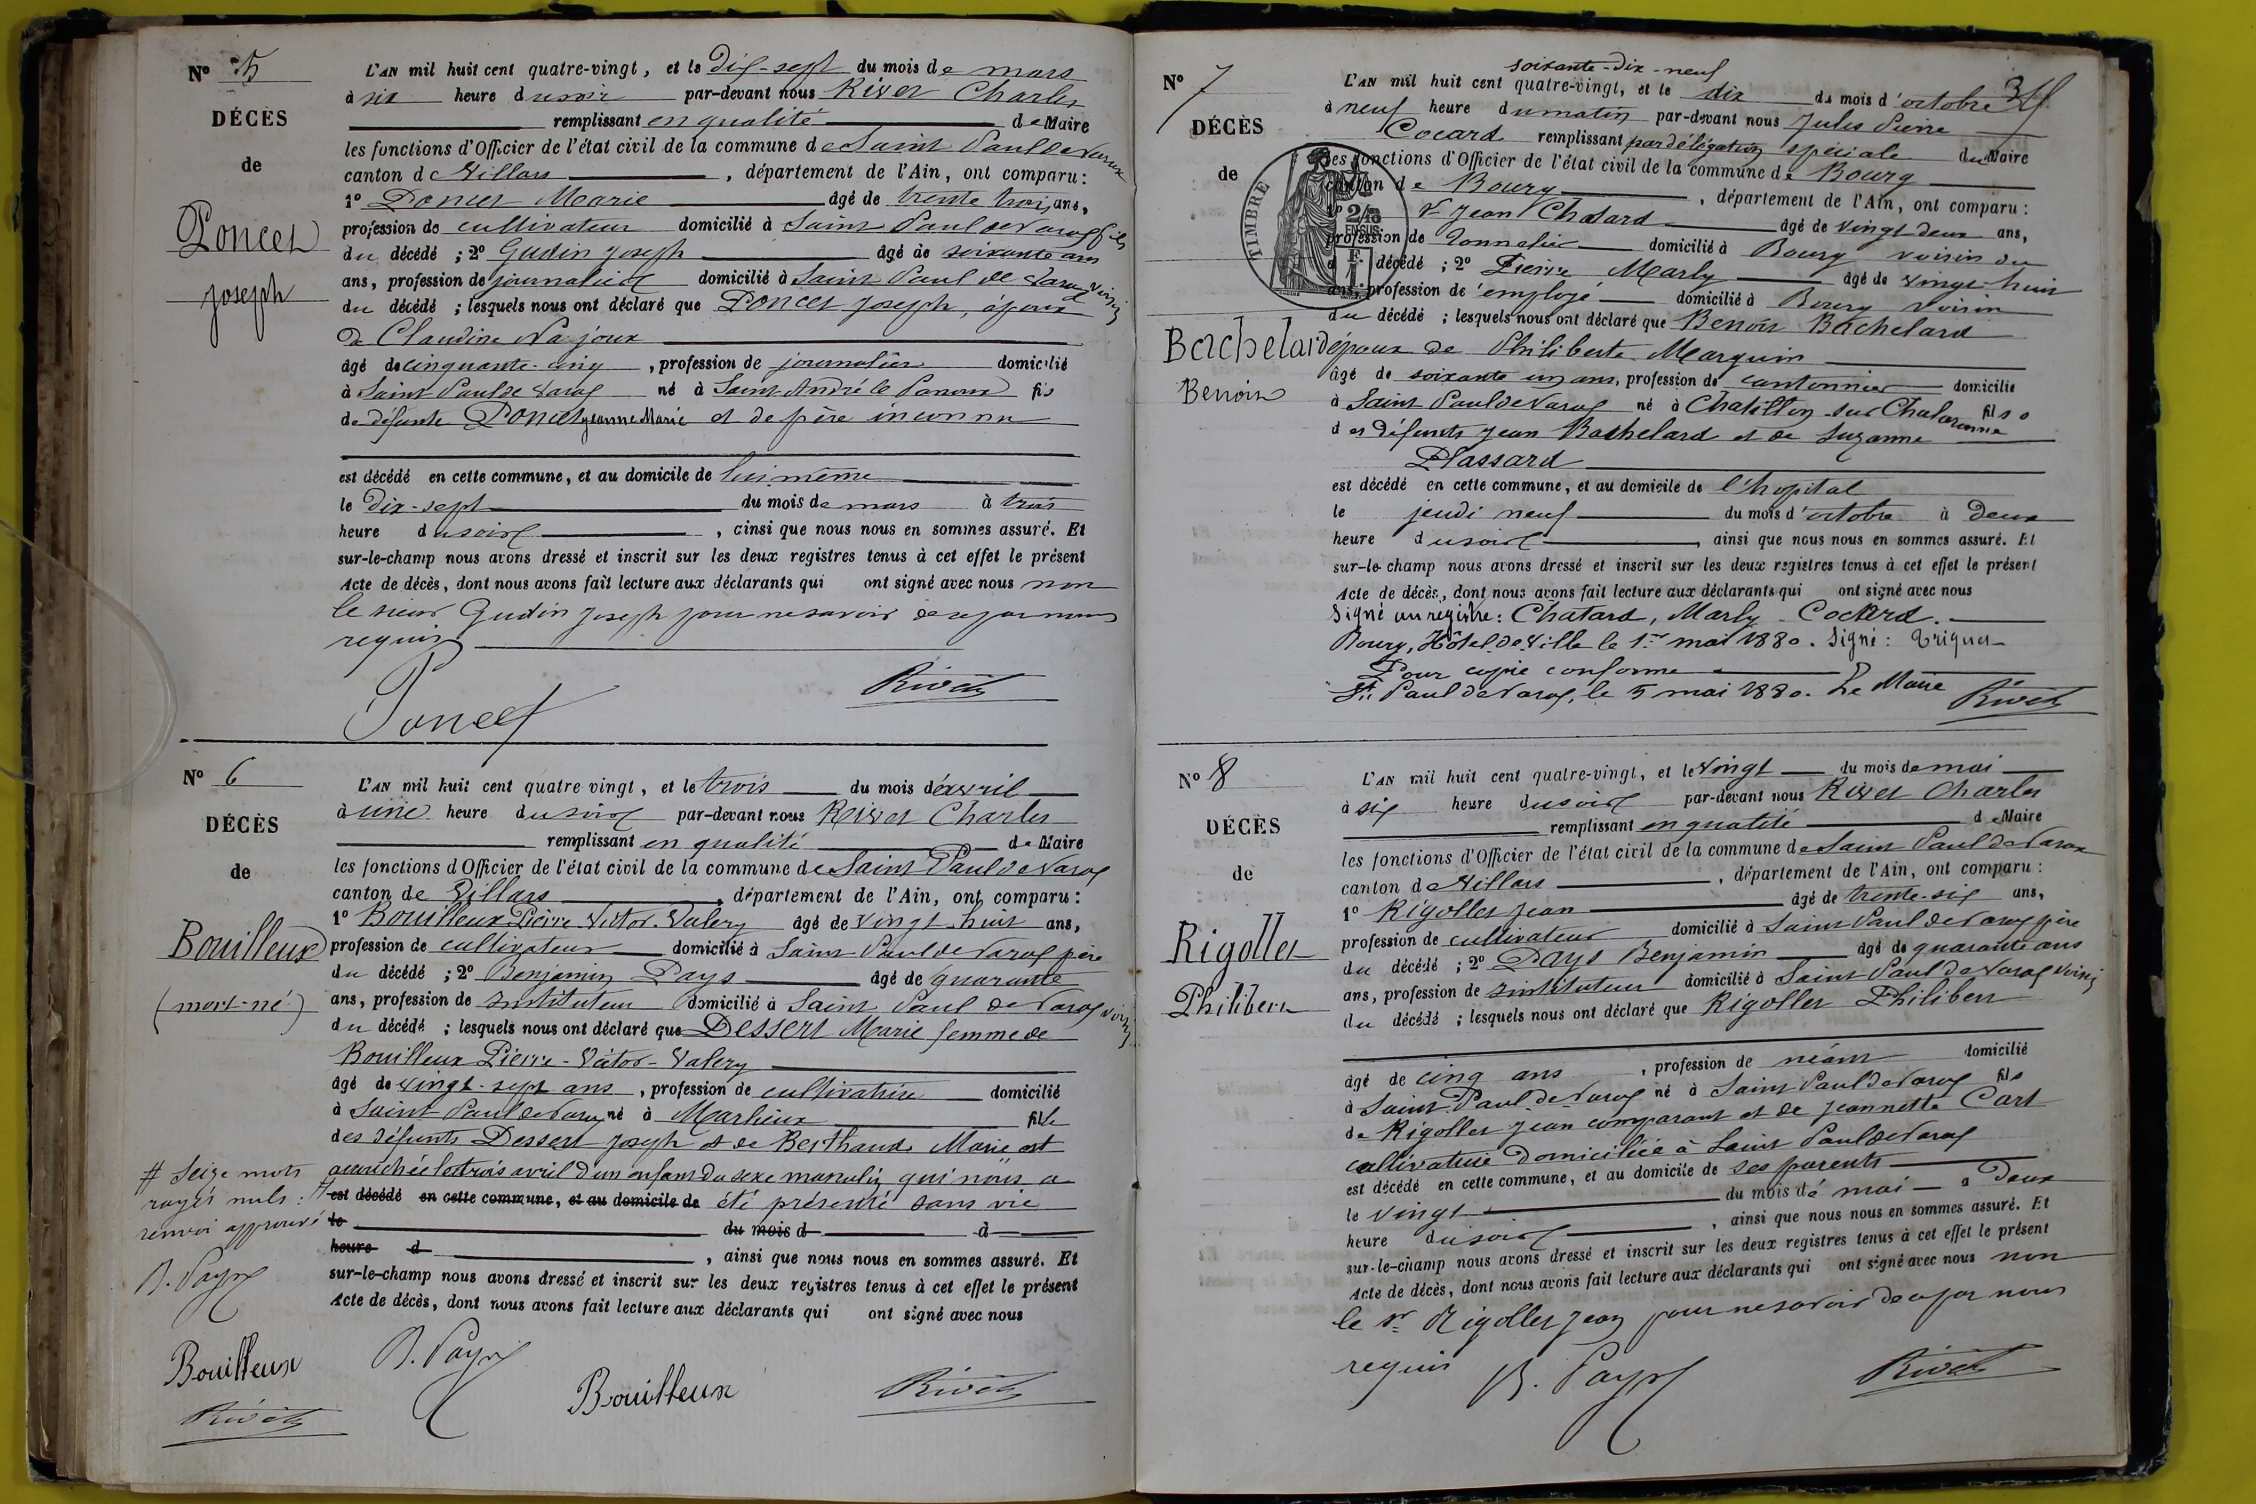 N° 5
DÉCÈS
de
Poncet
joseph
L'AN mil huit cent quatre-vingt, et le Dix-sept du mois de mars
à six heure du soir par-devant nous Rivet Charles
remplissant en qualité de Maire
les fonctions d'Officier de l'état civil de la commune de Saint Paul de Varax
canton de Villars, département de l'Ain, ont comparu:
1° Poncet Marie âgé de trente trois ans,
profession de cultivateur domicilié à Saint Paul de Varax fils
du décédé; 2° Gudin Joseph âgé de soixante ans
ans, profession de journalier domicilié à Saint Paul de Varax voisin
du décédé; lesquels nous ont déclaré que Poncet Joseph, époux
de Claudine Najoux
âgé de cinquante-cinq, profession de journalier domicilié
à Saint Paul de Varax né à Saint André le Panoux fils
de défunte Poncet jeanne Marie et de père inconnu
est décédé en cette commune, et au domicile de lui même
le dix-sept du mois de mars à trois
heure du soir, ainsi que nous nous en sommes assuré. Et
sur-le-champ nous avons dressé et inscrit sur les deux registres tenus à cet effet le présent
Acte de décès, dont nous avons fait lecture aux déclarants qui ont signé avec nous non
le sieur Gudin Joseph pour ne savoir de ce par nous
requis
Poncet Rivet
N° 6
DÉCÈS
de
Bouilleux
(mort-né)
L'AN mil huit cent quatre vingt, et le trois du mois d'avril
à une heure du soir par-devant nous Rivet Charles
remplissant en qualité de Maire
les fonctions d'Officier de l'état civil de la commune de Saint Paul de Varax
canton de Villars, département de l'Ain, ont comparu:
1° Bouilleux Pierre Victor-Valery âgé de vingt-huit ans,
profession de cultivateur domicilié à Saint Paul de Varax père
du décédé; 2° Benjamin Pays âgé de quarante
ans, profession de instituteur domicilié à Saint Paul de Varax voisin
du décédé; lesquels nous ont déclaré que Dessert Marie femme de
Bouilleux Pierre-Victor-Valery
âgé de vingt-sept ans, profession de cultivatrice domicilié
à Saint Paul de Varax né à Marlieux fille
des défunts Dessert Joseph et de Berthaud Marie est
accouchée le trois avril d'un enfant du sexe masculin qui nous a
# est décédé en cette commune, et au domicile de été présenté sans vie
le du mois d à
heure d, ainsi que nous nous en sommes assuré. Et
sur-le-champ nous avons dressé et inscrit sur les deux registres tenus à cet effet le présent
Acte de décès, dont nous avons fait lecture aux déclarants qui ont signé avec nous
# Seize mots
rayés nuls:
renvoi approuvé
B. Pays
Bouilleux B. Pays
Bouilleux Rivet
Rivet
34
N° 7
DÉCÈS
de
Bachelard
Benoit
TIMBRE
2/10 EN SUS
soixante-dix-neuf
L'AN mil huit cent quatre-vingt, et le dix du mois d'octobre
à neuf heure du matin par-devant nous Jules Pierre
Cocard remplissant par délégation spéciale du Maire
les fonctions d'Officier de l'état civil de la commune de Bourg
canton de Bourg, département de l'Ain, ont comparu:
1° Jean Chatard âgé de vingt deux ans,
profession de tonnelier domicilié à Bourg voisin du
décédé; 2° Pierre Marly âgé de vingt-huit
ans, profession de employé domicilié à Bourg voisin
du décédé; lesquels nous ont déclaré que Benoit Bachelard
époux de Philiberte Marguin
âgé de soixante un ans, profession de cantonnier domicilié
à Saint Paul de Varax né à Chatillon-sur-Chalaronne fils
des défunts Jean Bachelard et de Suzanne
Plassard
est décédé en cette commune, et au domicile de l'hopital
le jeudi neuf du mois d'octobre à deux
heure du soir, ainsi que nous nous en sommes assuré. Et
sur-le champ nous avons dressé et inscrit sur les deux registres tenus à cet effet le présent
Acte de décès, dont nous avons fait lecture aux déclarants qui ont signé avec nous
Signé au registre: Chatard, Marly - Cocard.
Bourg, Hôtel de Ville le 1er mai 1880. Signé: Triquet
Pour copie conforme
St Paul de Varax, le 5 mai 1880. Le Maire Rivet
N° 8
DÉCÈS
de
Rigollet
Philibert
L'AN mil huit cent quatre-vingt, et le vingt du mois de mai
à six heure du soir par-devant nous Rivet Charles
remplissant en qualité de Maire
les fonctions d'Officier de l'état civil de la commune de Saint Paul de Varax
canton de Villars, département de l'Ain, ont comparu:
1° Rigollet Jean âgé de trente-six ans,
profession de cultivateur domicilié à Saint Paul de Varax père
du décédé; 2° Pays Benjamin âgé de quarante ans
ans, profession de instituteur domicilié à Saint Paul de Varax voisin
du décédé; lesquels nous ont déclaré que Rigollet Philibert
âgé de cinq ans, profession de néant domicilié
à Saint-Paul-de-Varax né à Saint Paul de Varax fils
de Rigollet Jean comparant et de Jeannette Cart
cultivatrice domiciliée à Saint Paul de Varax
est décédé en cette commune, et au domicile de ses parents
le vingt du mois de mai à Deux
heure du soir, ainsi que nous nous en sommes assuré. Et
sur-le-champ nous avons dressé et inscrit sur les deux registres tenus à cet effet le présent
Acte de décès, dont nous avons fait lecture aux déclarants qui ont signé avec nous non
le Sr Rigollet Jean pour ne savoir de ce par nous
requis B. Pays Rivet